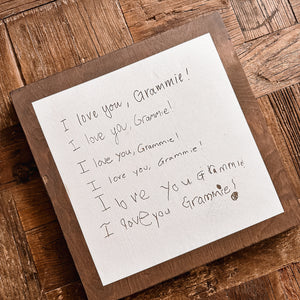 I love you, Grammie!
I love you, Grammie!
I love you, Grammie!
I love you, Grammie!
I love you Grammie
I love you Grammie!